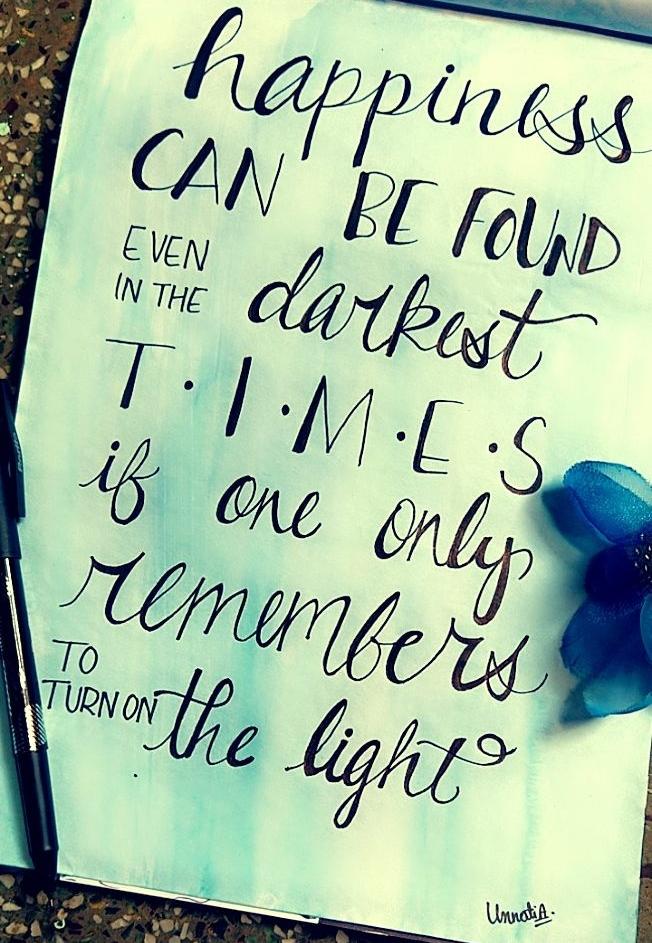 happiness
CAN BE FOUND
EVEN
IN THE darkest
T.I.M.E.S
if one only
remembers
TO
TURN ON the light
UnnatiA.